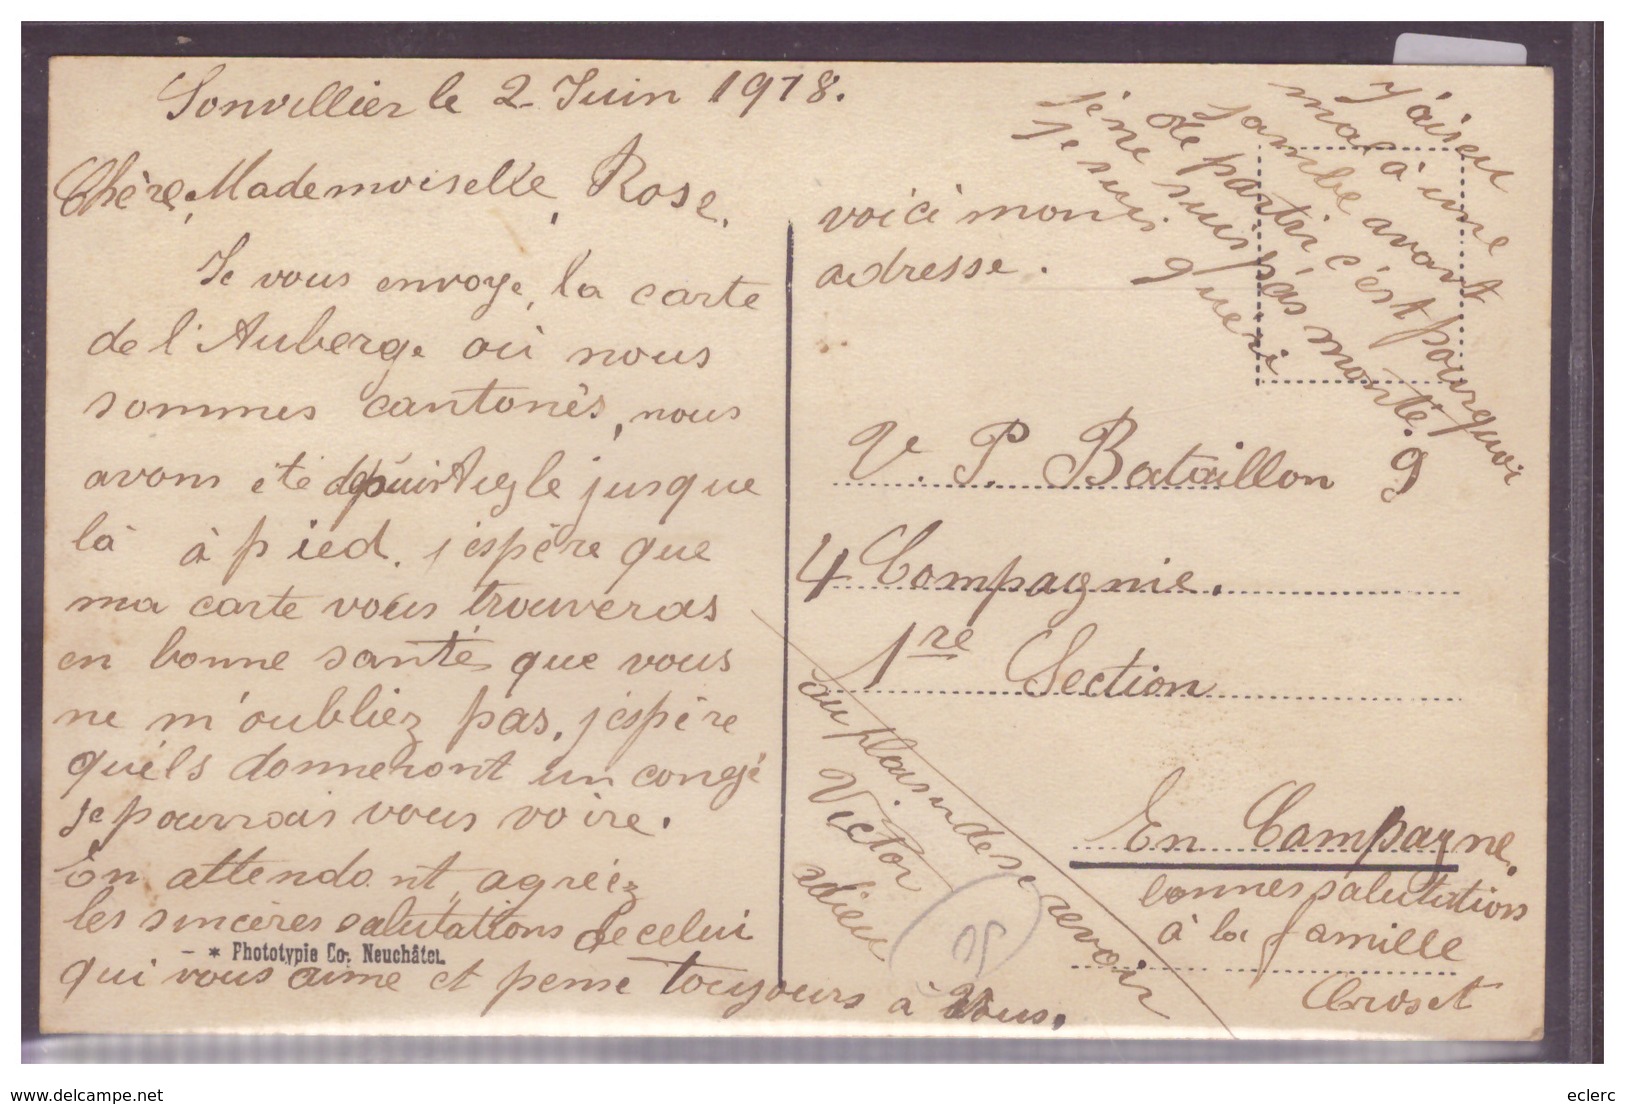 Sonvillier le 2 Juin 1918.
Chère Mademoiselle Rose.
Je vous envoye la carte
de l'Auberge où nous
sommes cantonés, nous
avons été depuis Aigle jusque
là à pied. j'espère que
ma carte vous trouveras
en bonne santé que vous
ne m'oubliez pas, j'espère
qu'ils donneront un congé
je pourrais vous voire.
En attendant, agréez
les sincères salutations de celui
qui vous aime et pense toujours à vous.
– * Phototypie Co. Neuchâtel.
voici mon
adresse.
V. P. Bataillon 9
4 Compagnie.
1re Section
En Campagne.
bonnes salutations
à la famille
Croset
au plaisir de se revoir
Victor
adieu
J'ai eu
mal à une
jambe avant
de partir c'est pourquoi
je ne suis pas monté.
Je suis guéri